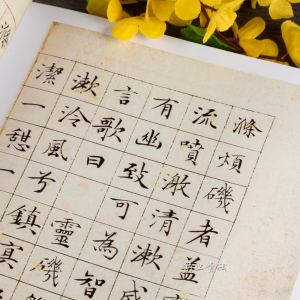 滌煩磯者益
流噴激清漱成
有幽致可為智
言歌曰靈磯
漱泠風兮鎮冥
潔一憩一